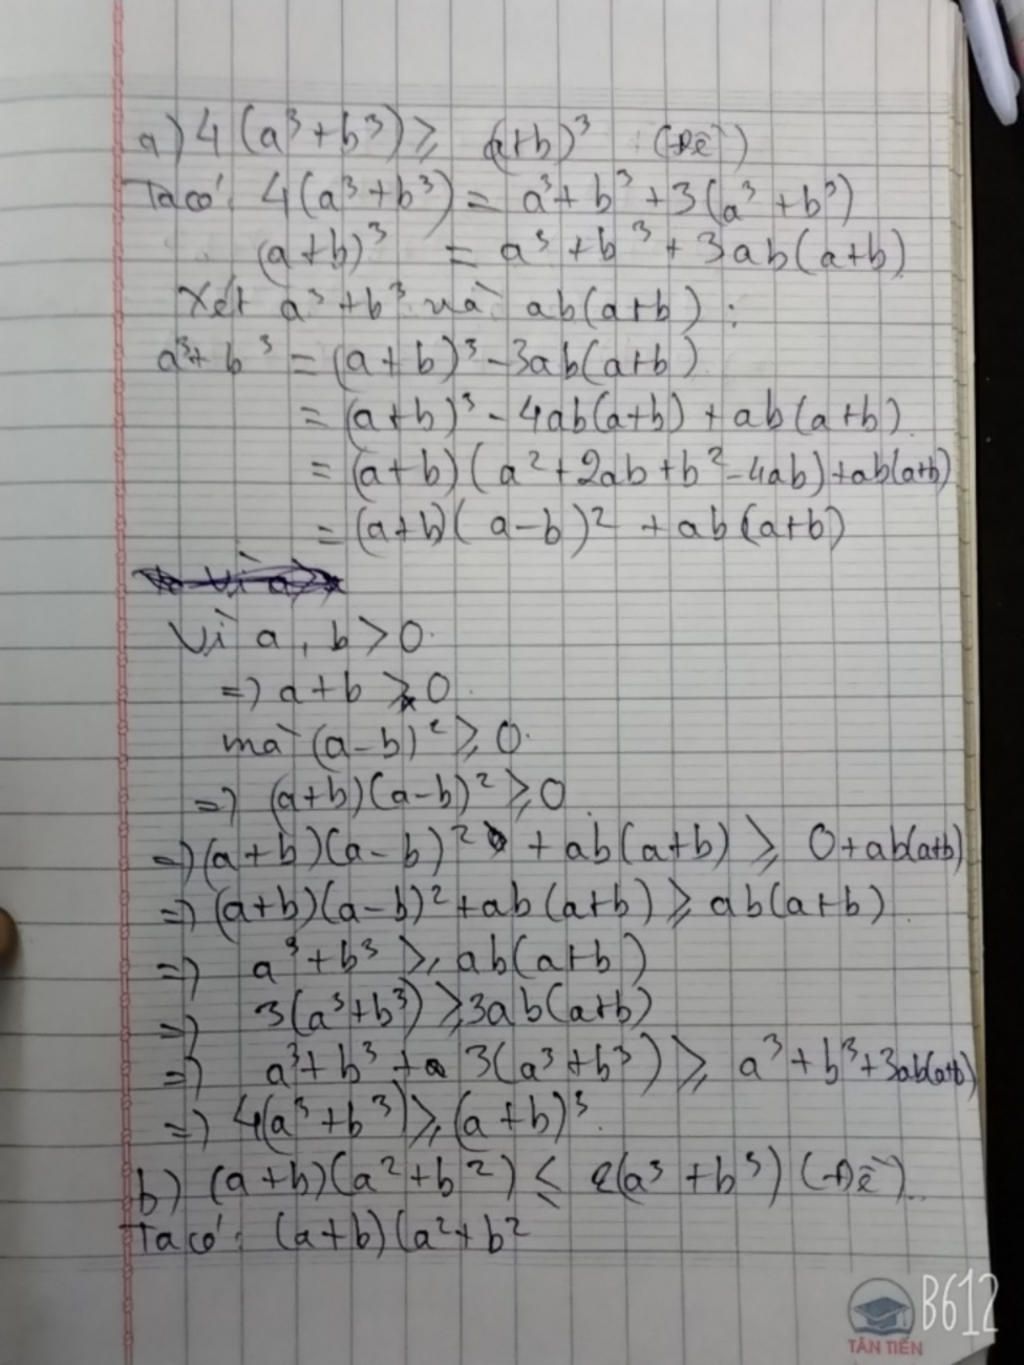 a) 4(a³+b³) ≥ (a+b)³ (Đề)
Ta có: 4(a³+b³) = a³+b³+3(a³+b³)
(a+b)³ = a³+b³+3ab(a+b)
Xét a³+b³ và ab(a+b):
a³+b³ = (a+b)³-3ab(a+b)
= (a+b)³-4ab(a+b)+ab(a+b)
= (a+b)(a²+2ab+b²-4ab)+ab(a+b)
= (a+b)(a-b)²+ab(a+b)
Vì a, b > 0.
=) a+b ≥ 0.
mà (a-b)² ≥ 0.
=) (a+b)(a-b)² ≥ 0
=) (a+b)(a-b)² + ab(a+b) ≥ 0+ab(a+b)
=) (a+b)(a-b)²+ab(a+b) ≥ ab(a+b)
=) a³+b³ ≥ ab(a+b)
=) 3(a³+b³) ≥ 3ab(a+b)
=) a³+b³ + 3(a³+b³) ≥ a³+b³+3ab(a+b)
=) 4(a³+b³) ≥ (a+b)³.
b) (a+b)(a²+b²) ≤ 2(a³+b³) (Đề)
Ta có: (a+b)(a²+b²
B612
TÂN TIẾN